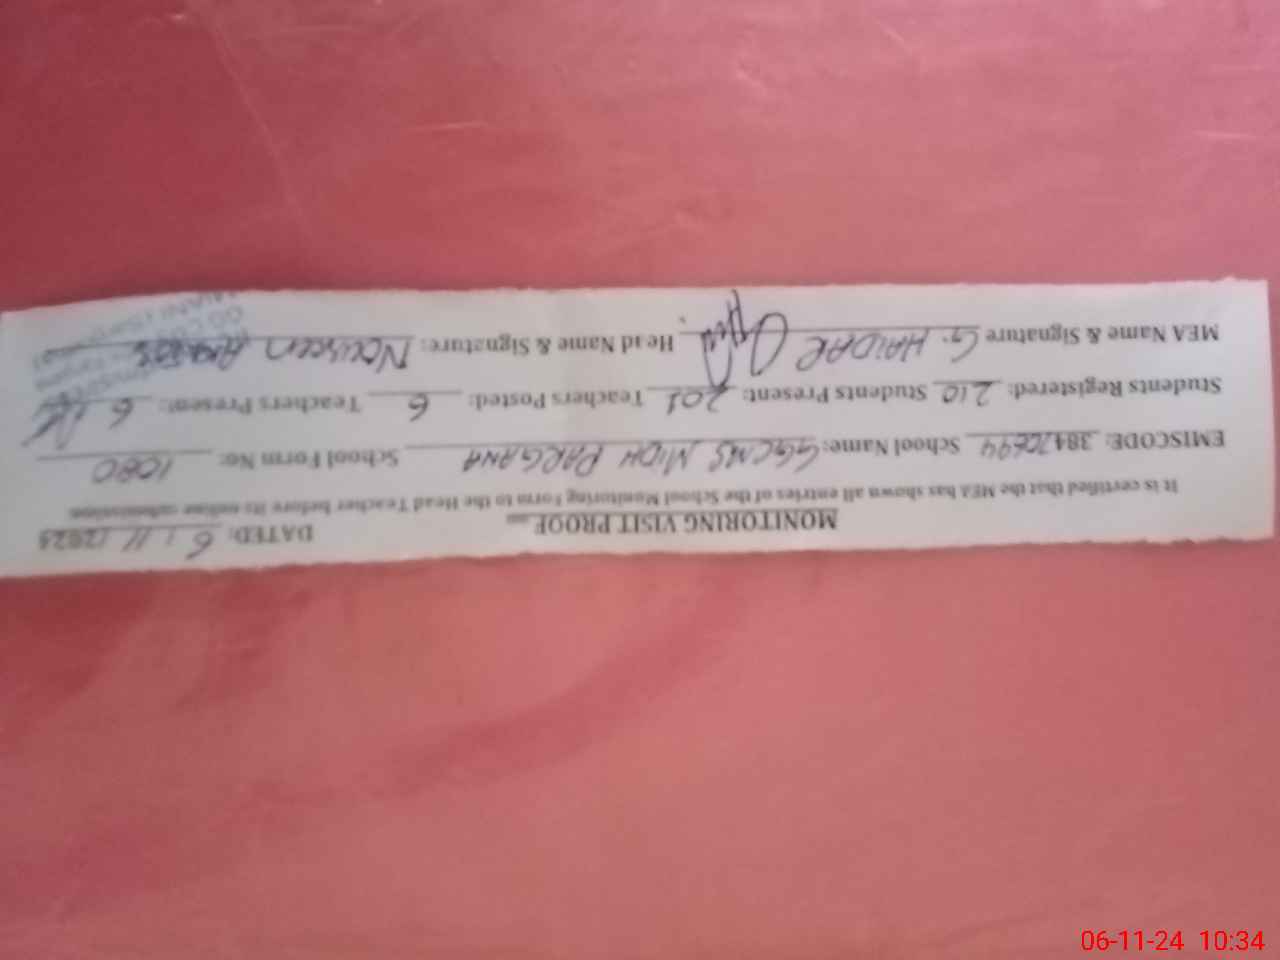 MONITORING VISIT PROOF DATED: 6 / 11 /2023
It is certified that the MEA has shown all entries of the School Monitoring Form to the Head Teacher before its online submission
EMISCODE: 38470694 School Name: GGCMS MIDH PARGANA School Form No: 1080
Students Registered: 210 Students Present: 201 Teachers Posted: 6 Teachers Present: 6
MEA Name & Signature G. HAIDAR Head Name & Signature: Nousheen
06-11-24 10:34